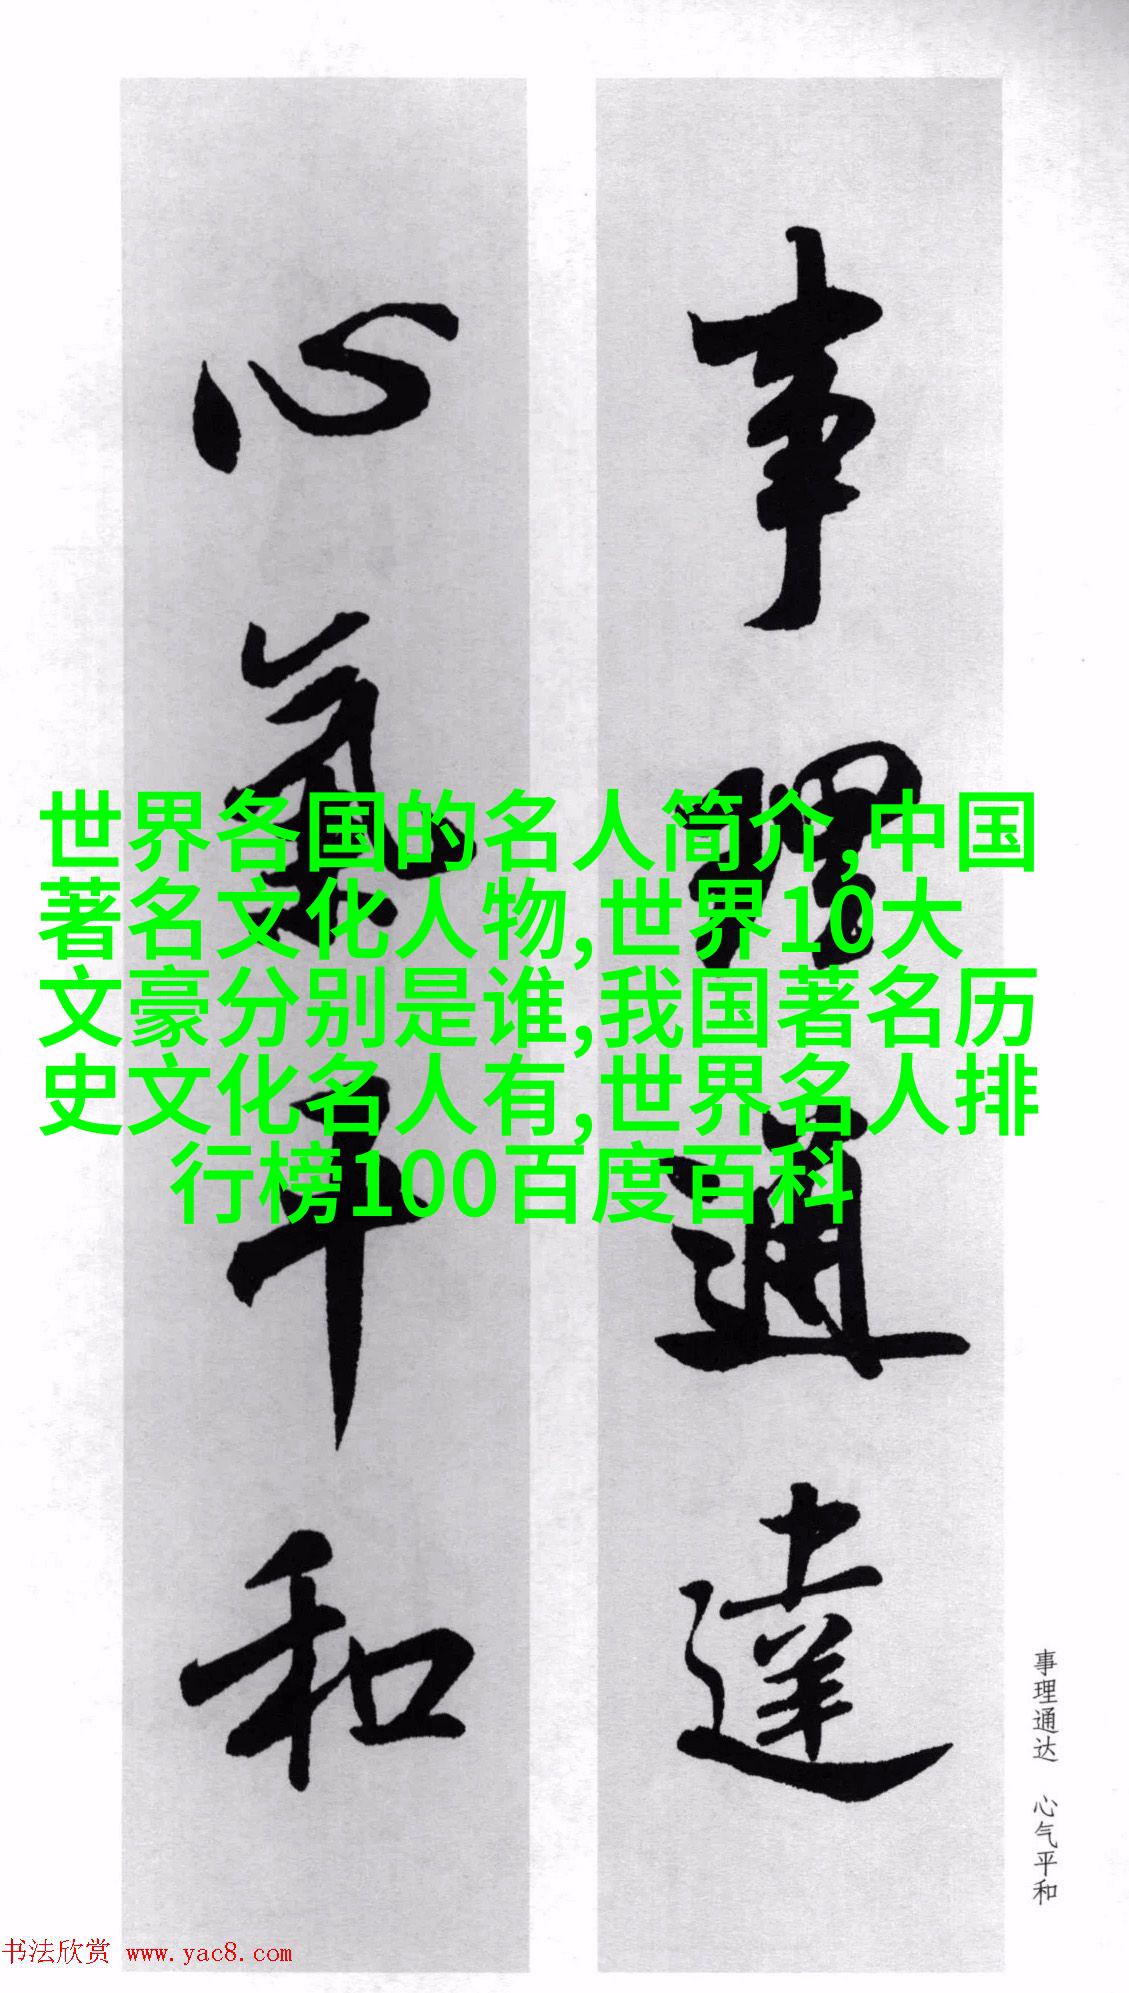 事理通達
心氣平和
世界各国的名人简介,中国
著名文化人物,世界10大
文豪分别是谁,我国著名历
史文化名人有,世界名人排
行榜100百度百科
事理通达 心气平和
书法欣赏 www.yac8.com